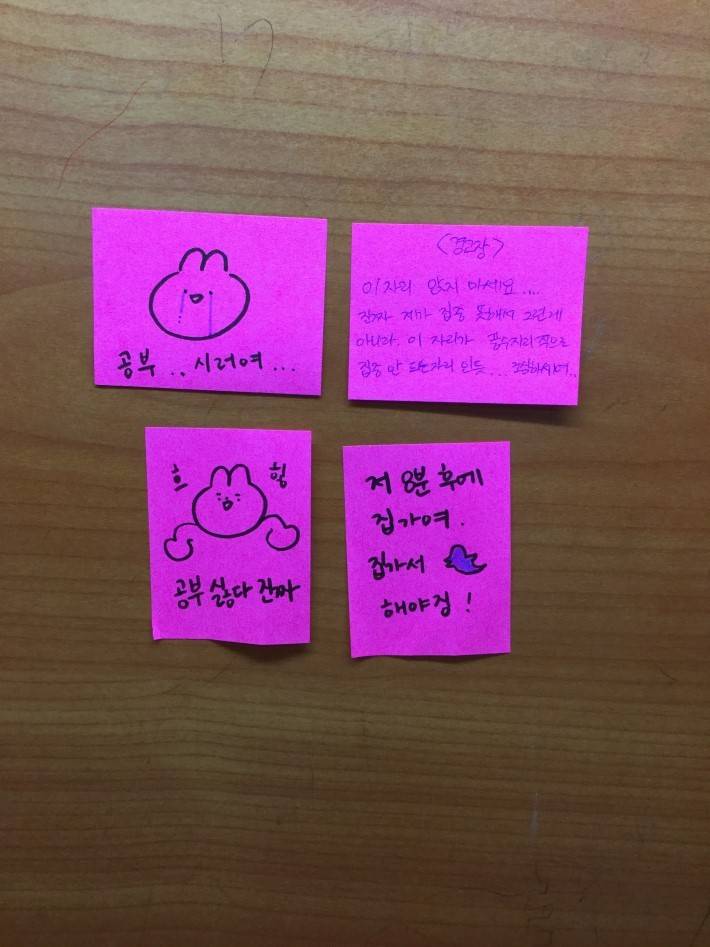 공부.. 시러여...
<경고장>
이 자리 앉지 마세요....
진짜 제가 집중 못해서 그런게
아니라. 이 자리가 풍수지리적으로
집중 안 되는자리 인듯... 조심하시여..
흐 헝
공부 싫다 진짜
저 8분 후에
집가여.
집가서
해야징 !